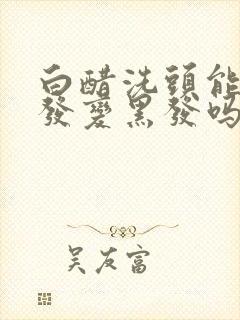 白醋洗頭能
發變黑發吗
吴友富